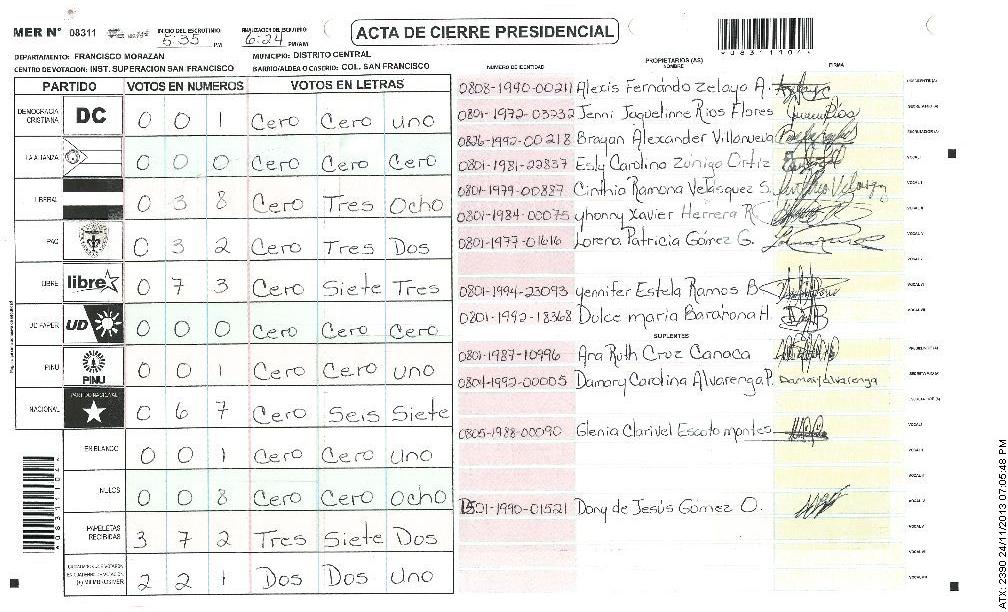 MER Nº 08311 INICIO DEL ESCRUTINIO 5:35 PM 6:24 PM/AM
ACTA DE CIERRE PRESIDENCIAL
DEPARTAMENTO: FRANCISCO MORAZAN MUNICIPIO: DISTRITO CENTRAL
CENTRO DE VOTACION: INST. SUPERACION SAN FRANCISCO BARRIO/ALDEA O CASERIO: COL. SAN FRANCISCO
NUMERO DE IDENTIDAD PROPIETARIOS (AS) NOMBRE FIRMA
PARTIDO VOTOS EN NUMEROS VOTOS EN LETRAS
DEMOCRACIA CRISTIANA DC 0 0 1 Cero Cero uno
LA ALIANZA 0 0 0 Cero Cero Cero
LIBERAL 0 3 8 Cero Tres Ocho
PAC 0 3 2 Cero Tres Dos
LIBRE libre 0 7 3 Cero Siete Tres
UD FAPER UD 0 0 0 Cero Cero Cero
PINU PINU 0 0 1 Cero Cero uno
NACIONAL PARTIDO NACIONAL 0 6 7 Cero Seis Siete
EN BLANCO 0 0 1 Cero Cero uno
NULOS 0 0 8 Cero Cero Ocho
PAPELETAS RECIBIDAS 3 7 2 Tres Siete Dos
2 2 1 Dos Dos Uno
0808-1990-00211 Alexis Fernándo Zelaya A.
0801-1972-03732 Jenni Jaquelinne Rios Flores
0826-1992-00218 Brayan Alexander Villanueva
0801-1981-22837 Esly Carolina Zúniga Ortiz
0801-1979-00887 Cinthia Ramona Velásquez S.
0801-1984-00075 yhonny Xavier Herrera R
0801-1977-01616 Lorena Patricia Gómez G.
0801-1994-23093 yennifer Estela Ramos B
0801-1992-18368 Dulce maria Barahona H.
SUPLENTES
0801-1987-10996 Ana Ruth Cruz Canaca
0801-1992-00005 Damary Carolina Alvarenga P. Damary Alvarenga
0805-1988-00090 Glenia Clarivel Escoto montes
1501-1990-01521 Dony de Jesús Gómez O.
ATX: 2390 24/11/2013 07:05:48 PM